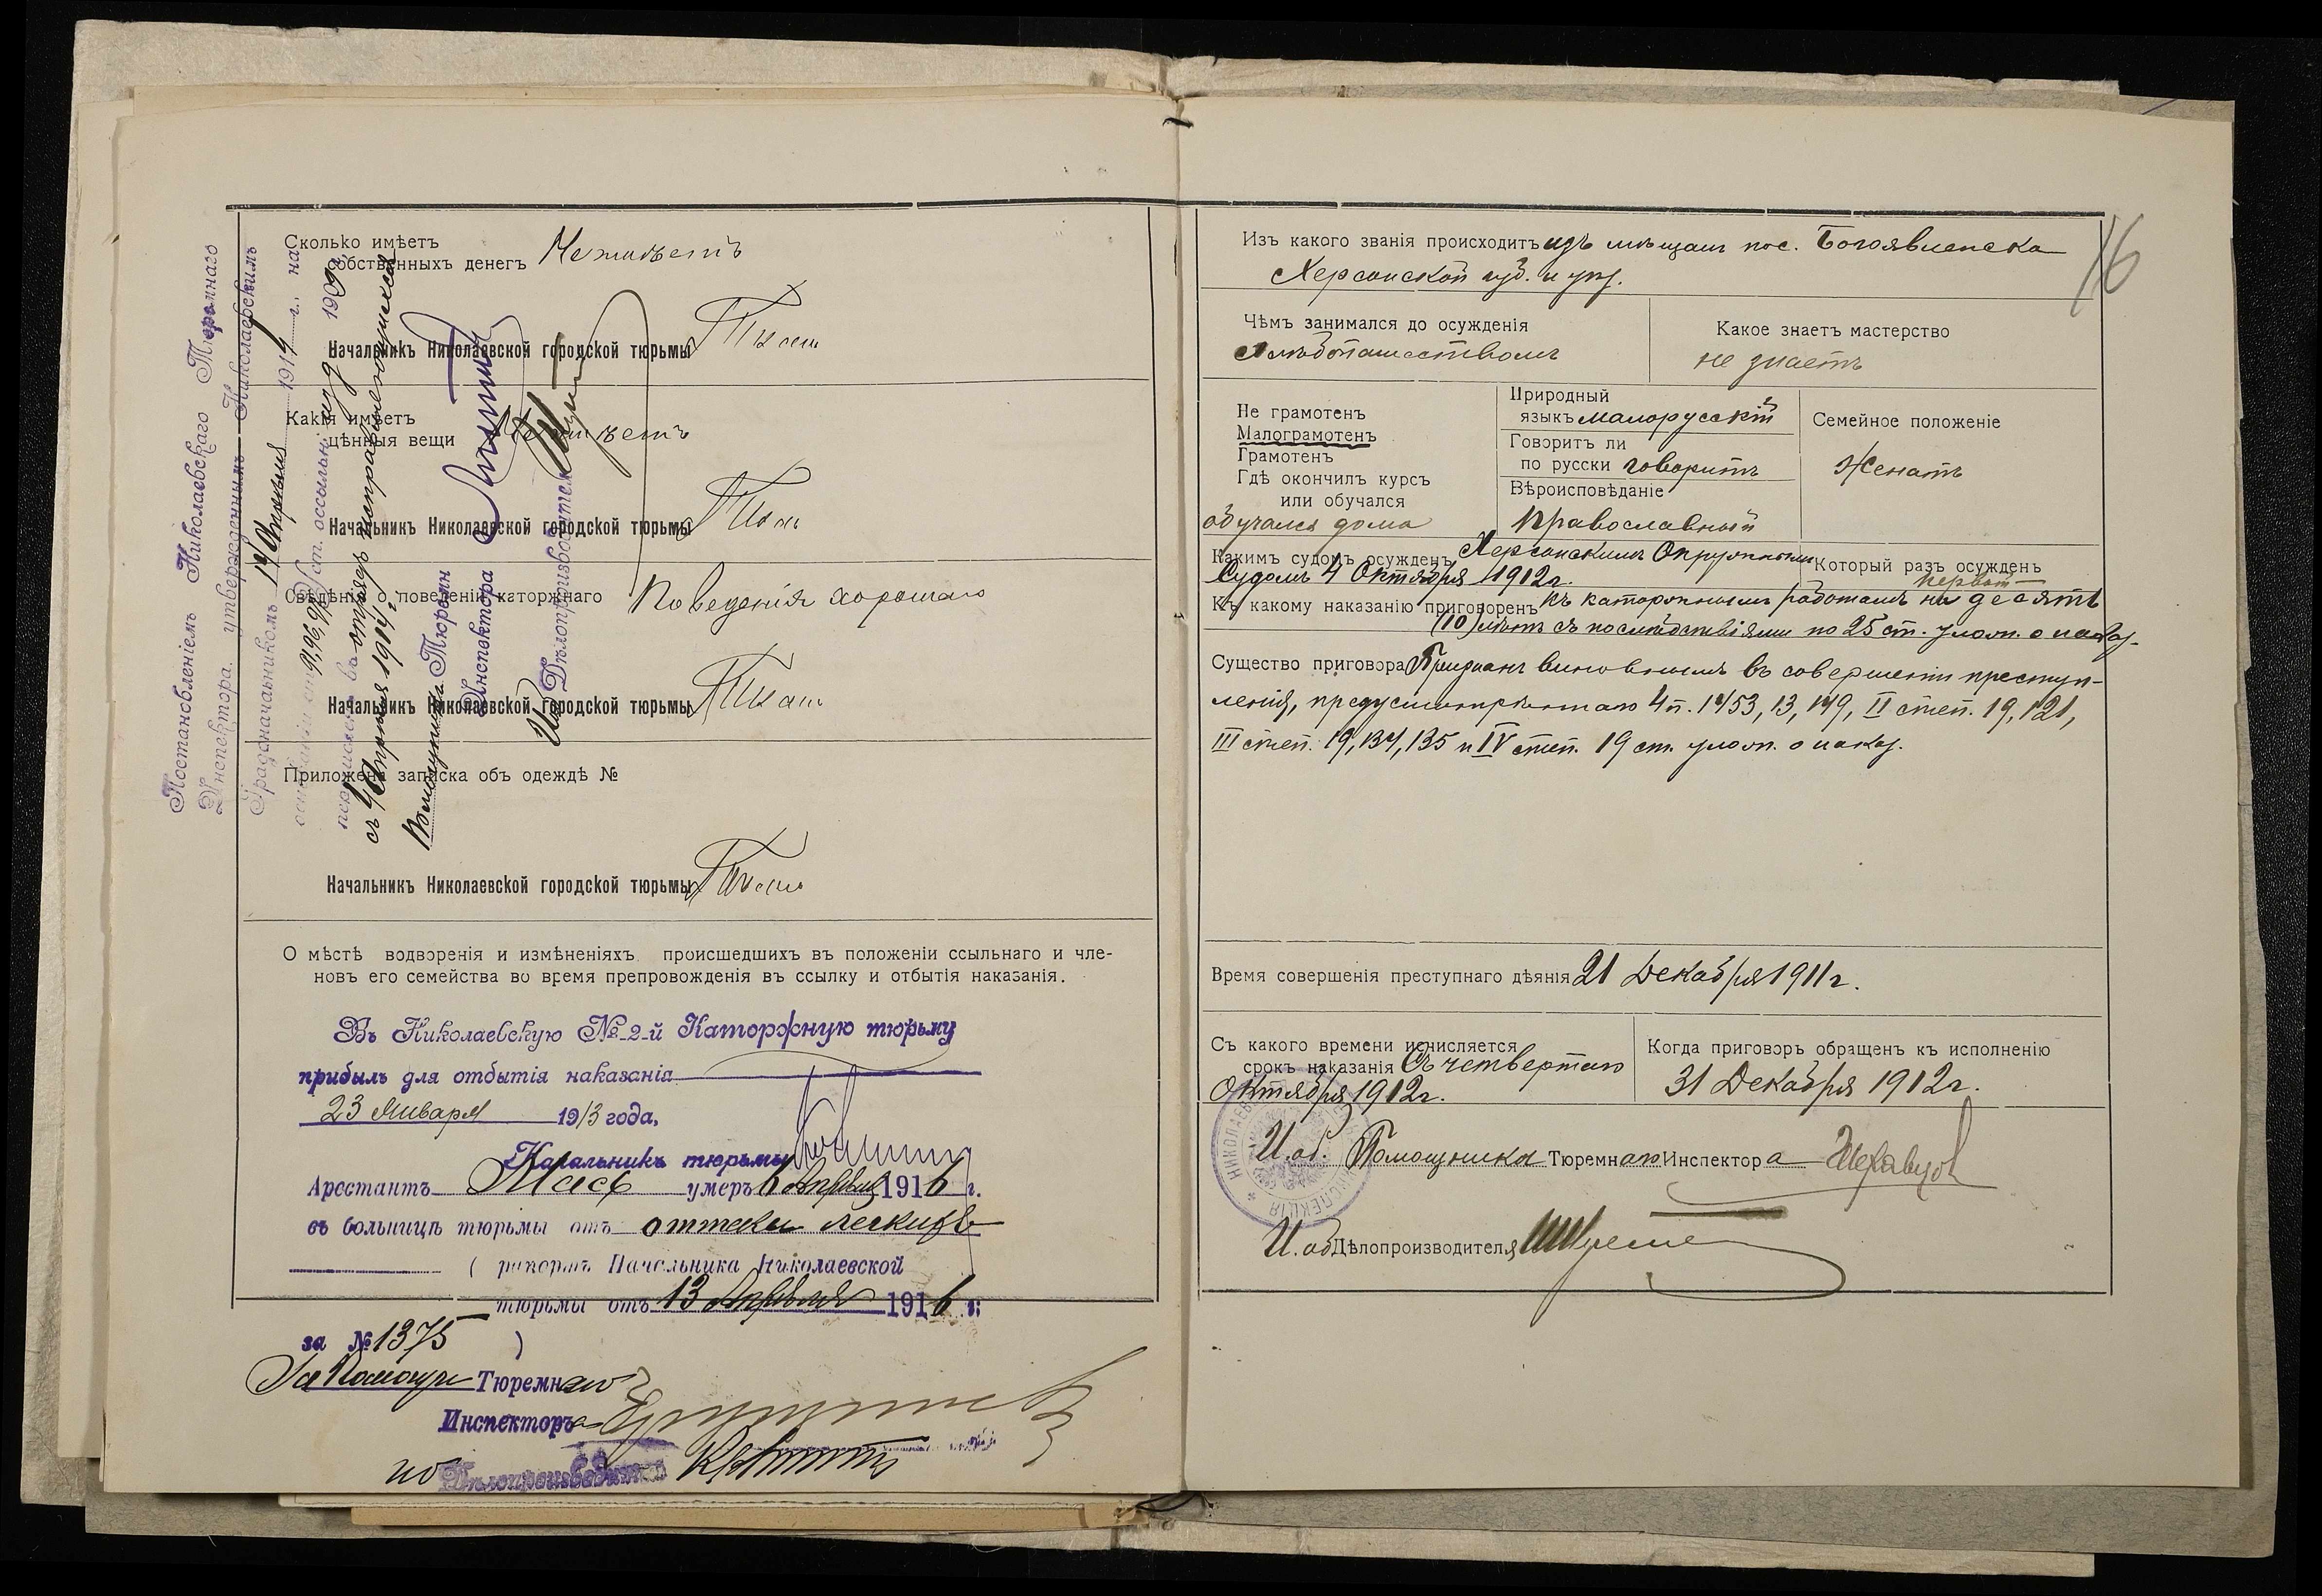 Сколько имѣетъ
собственныхъ денегъ Не имѣетъ
Начальникъ Николаевской городской тюрьмы
Какія имѣетъ
цѣнныя вещи Не имѣетъ
Начальникъ Николаевской городской тюрьмы
Свѣдѣнія о поведеніи каторжнаго Поведенія хорошаго
Начальникъ Николаевской городской тюрьмы
Приложена записка объ одеждѣ №
Начальникъ Николаевской городской тюрьмы
О мѣстѣ водворенія и измѣненіяхъ, происшедшихъ въ положеніи ссыльнаго и чле-
новъ его семейства во время препровожденія въ ссылку и отбытія наказанія.
Въ Николаевскую №-2-й Каторжную тюрьму
прибылъ для отбытія наказанія
23 Января 1913 года,
Начальникъ тюрьмы
Арестантъ умеръ 6 Апрѣля 1916 г.
въ больницѣ тюрьмы отъ отека легкихъ
( рапортъ Начальника Николаевской
тюрьмы отъ 13 Апрѣля 1916 г.
за № 1375 )
За Помощн Тюремнаго
Инспектора
ио Дѣлопроизводителя
Постановленіемъ Николаевскаго Тюремнаго
Инспектора, утвержденнымъ Николаевскимъ
Градоначальникомъ 14 Апрѣля 1914 г., на
основаніи ст. 91, 96, 97 Уст. о ссыльн. изд 1909 г.
перечисленъ въ отрядъ исправляющихся
съ 4 Апрѣля 1914 г.
Помощникъ Тюремн
Инспектора
Ио Дѣлопроизводителя
16
Изъ какого званія происходитъ изъ мѣщанъ пос. Богоявленска
Херсонской губ. и уѣз.
Чѣмъ занимался до осужденія
хлѣбопашествомъ
Какое знаетъ мастерство
не знаетъ
Не грамотенъ
Малограмотенъ
Грамотенъ
Гдѣ окончилъ курсъ
или обучался
обучался дома
Природный
языкъ малорусскій
Говоритъ ли
по русски говоритъ
Вѣроисповѣданіе
православный
Семейное положеніе
Женатъ
Какимъ судомъ осужденъ Херсонскимъ Окружнымъ
Судомъ 4 Октября 1912 г.
Который разъ осужденъ
первый
Къ какому наказанію приговоренъ къ каторжнымъ работамъ на десять
(10) лѣтъ съ послѣдствіями по 25 ст. улож. о наказ.
Существо приговора Признанъ виновнымъ въ совершеніи преступ-
ленія, предусмотрѣннаго 4 п. 1453, 13, 149, II степ. 19, 121,
III степ. 19, 134, 135 и IV степ. 19 ст. улож. о наказ.
Время совершенія преступнаго дѣянія 21 Декабря 1911 г.
Съ какого времени исчисляется
срокъ наказанія Съ четвертаго
Октября 1912 г.
Когда приговоръ обращенъ къ исполненію
31 Декабря 1912 г.
И. об. Помощника Тюремнаго Инспектора
И. об Дѣлопроизводителя